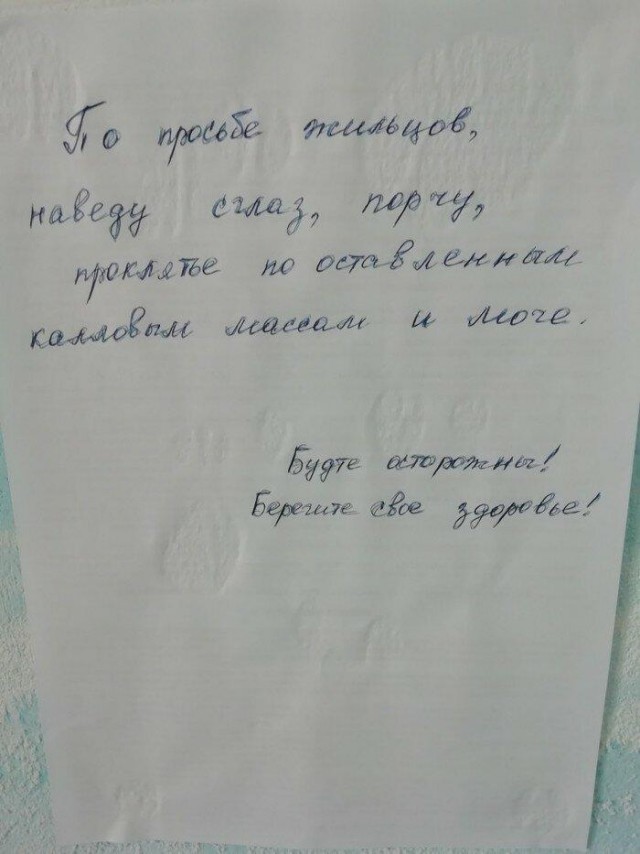 По просьбе жильцов,
наведу сглаз, порчу,
проклятье по оставленным
калловым массам и моче.
Будте осторожны!
Берегите свое здоровье!